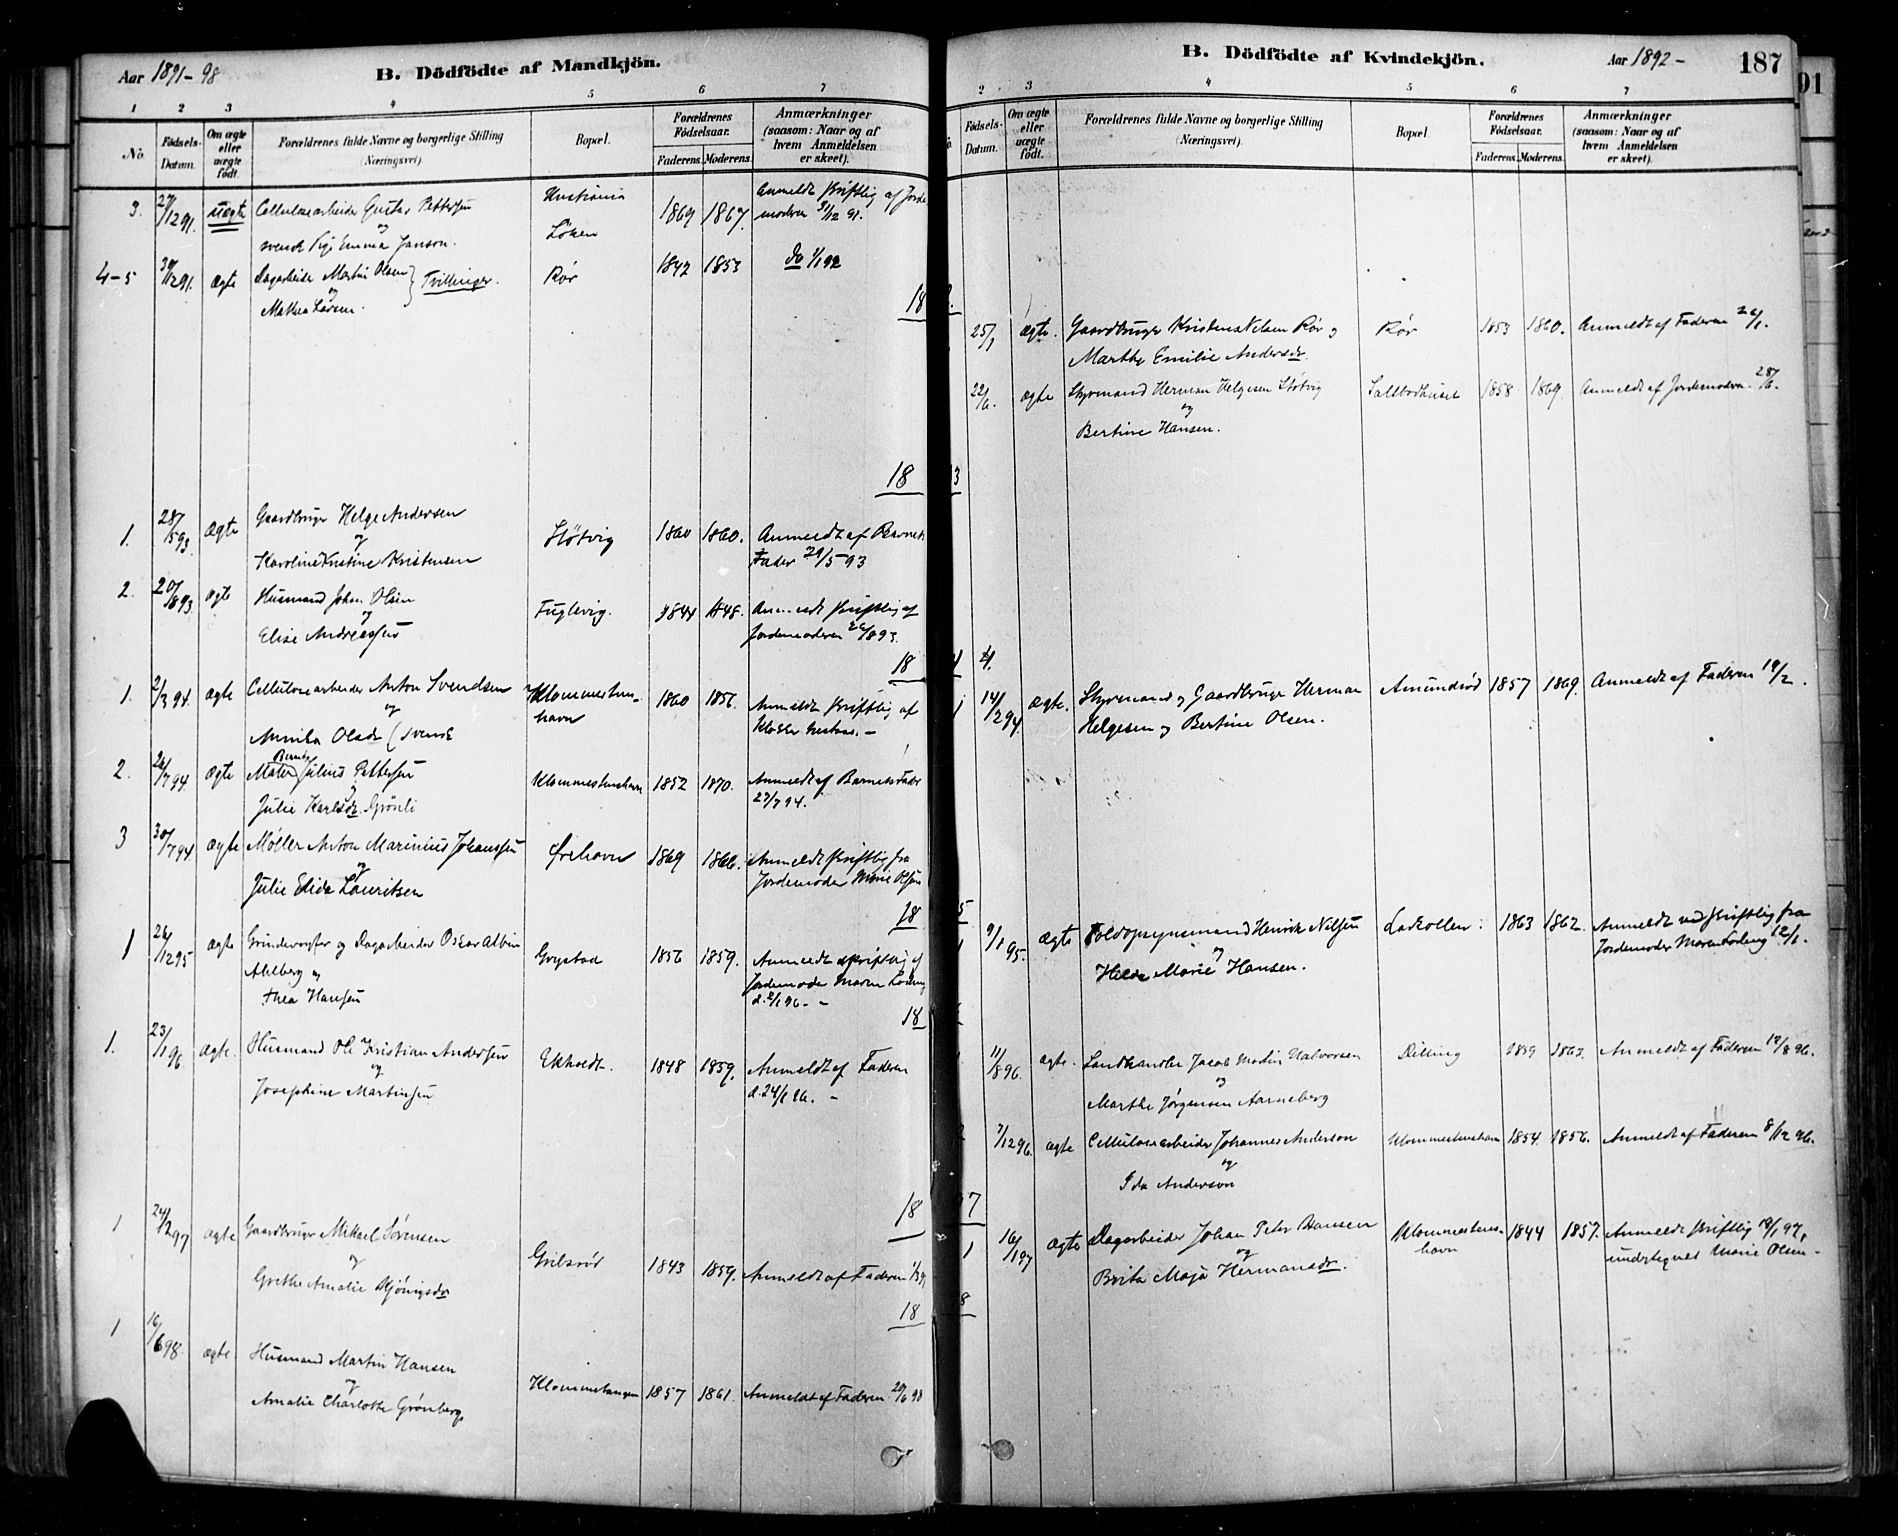 Aar 1891-98
B. Dödfödte af Mandkjön.
1 2 3 4 5 6 7
No.
Födsels-
Datum.
Om ægte
eller
uægte
födt.
Forældrenes fulde Navne og borgerlige Stilling
(Næringsvei)
Bopæl.
Forældrenes
Födselsaar.
Faderens. Moderens.
Anmærkninger
(saasom: Naar og af
hvem Anmeldelsen
er skeet).
3. 27/12 91. uægte Cellulosearbeider Gustav Pettersen
og
svensk Pige Emma Janson.
Kristiania
Löken
1869 1867. Anmeldt skriftlig af Jorde
moderen 31/12 91.
4-5 30/12 91. ægte Dagarbeider Martin Olsen
og
Mathea Larsen.
Tvillinger.
Rör 1842 1853 do 2/1 92
18
18
1. 28/5 93. ægte Gaardbruger Helge Andersen
og
Karoline Kristine Kristensen
Støtvig 1860 1860. Anmeldt af Barnets
Fader 29/5 93
2. 20/8 93. ægte Husmand Johan Olsen
og
Elise Andreassen
Fuglevig. 1844 1848. Anmeldt skriftlig af
Jordemoderen 26/8 93.
18
1. 2/3 94. ægte Cellulosearbeider Anton Svendsen
og
Annika Olsdr (svensk
Klommesten-
havn
1860 1856. Anmeldt skriftlig af
2. 26/7 94. ægte Maler Julius Pettersen
og
Julie Karlsdr. Grönli
Klommestenshavn 1852 1870. Anmeldt af Barnets Fader
27/7 94.
3 30/7 94 ægte Møller Anton Marinius Johanssen
og
Julie Elida Lauritsen
Ørehavn 1869 1866. Anmeldt skriftlig fra
Jordemoder Marie Olsen
18
1 26/12 95 ægte Grinderværfer og Dagarbeider Oscar Albin
Ahlberg og
Thea Hansen
Grystad 1856 1859. Anmeldt skriftlig af
Jordemoder Maren Lödeng
d. 2/1 96. -
18
1. 23/1 96. ægte. Husmand Ole Kristian Andersen
og
Josephine Martinsen
Ekholdt. 1848 1859. Anmeldt af Faderen
d. 24/1 96. -
18
1 24/2 97 ægte Gaardbruger Mikael Sörensen
og
Grethe Amalie Kjönigsdr
Grilsrød 1843 1859. Anmeldt af Faderen 1/3 97
18
1 16/6 98. ægte Husmand Martin Hansen
og
Amalie Charlotte Grönberg
Klommestangen 1857 1861. Anmeldt af Faderen 20/6 98
B. Dödfödte af Kvindekjön.
Aar 1892 -
187
2 3 4 5 6 7
Födsels-
Datum.
Om ægte
eller
uægte
födt.
Forældrenes fulde Navne og borgerlige Stilling
(Næringsvei)
Bopæl.
Forældrenes
Födselsaar.
Faderens. Moderens.
Anmærkninger
(saasom: Naar og af
hvem Anmeldelsen
er skeet).
25/1 ægte. Gaardbruger Kristens Nilsen Rör og
Marthe Emilie Andersdr.
Rör 1853 1860. Anmeldt af Faderen 26/1.
22/6. ægte Styrmand Herman Helgesen Støtvig
og
Bertine Hansen.
Saltbodhuset 1858 1869. Anmeldt af Jordemoderen 28/6.
3
4.
1 14/2 94. ægte. Styrmand og Gaardbruger Herman
Helgesen og Bertine Olsen.
Amundrød 1857 1869. Anmeldt af Faderen 19/2.
5
1 9/1 95. ægte Toldopsynsmand Henrik Nilssen
og
Hilda Marie Hansen.
Larkollen 1863 1862. Anmeldt skriftlig fra
Jordemoder Maren Lödeng 12/1.
11/8 96. ægte. Landhandler Jacob Martin Halvorsen
og
Marthe Jörgensen Aarneberg
Dilling 1859 1863. Anmeldt af Faderen 12/8 96.
2 7/12 96. ægte Cellulosearbeider Johannes Anderson
og
Ida Anderson
Klommestenshavn 1854. 1856. Anmeldt af Faderen 8/12 96.
7
1 16/1 97 ægte Dagarbeider Johan Peter Hansen
og
Brita Maja Hermansdr.
Klommestens-
havn
1844 1857. Anmeldt skriftlig 19/1 97,
undertegnet Marie Olsen -
8
91